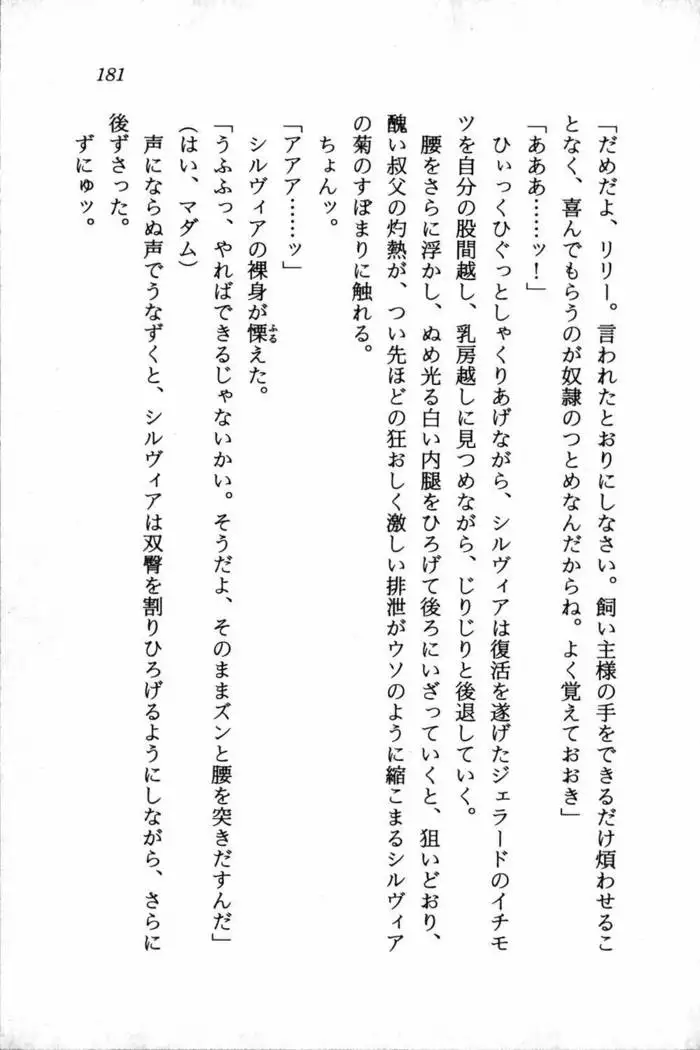 181
「だめだよ、リリー。言われたとおりにしなさい。飼い主様の手をできるだけ煩わせるこ
となく、喜んでもらうのが奴隷のつとめなんだからね。よく覚えておおき」
「あああ……ッ！」
ひぃっくひぐっとしゃくりあげながら、シルヴィアは復活を遂げたジェラードのイチモ
ツを自分の股間越し、乳房越しに見つめながら、じりじりと後退していく。
腰をさらに浮かし、ぬめ光る白い内腿をひろげて後ろにいざっていくと、狙いどおり、
醜い叔父の灼熱が、つい先ほどの狂おしく激しい排泄がウソのように縮こまるシルヴィア
の菊のすぼまりに触れる。
ちょんッ。
「アアア……ッ」
シルヴィアの裸身が慄ふるえた。
「うふふっ、やればできるじゃないかい。そうだよ、そのままズンと腰を突きだすんだ」
（はい、マダム）
声にならぬ声でうなずくと、シルヴィアは双臀を割りひろげるようにしながら、さらに
後ずさった。
ずにゅッ。